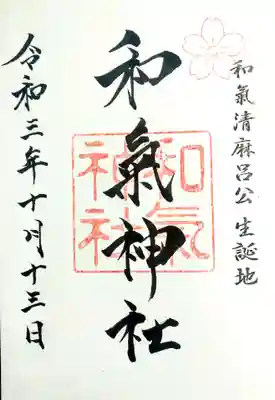 和氣清麻呂公 生誕地
和氣神社
和氣神社
令和三年十月十三日